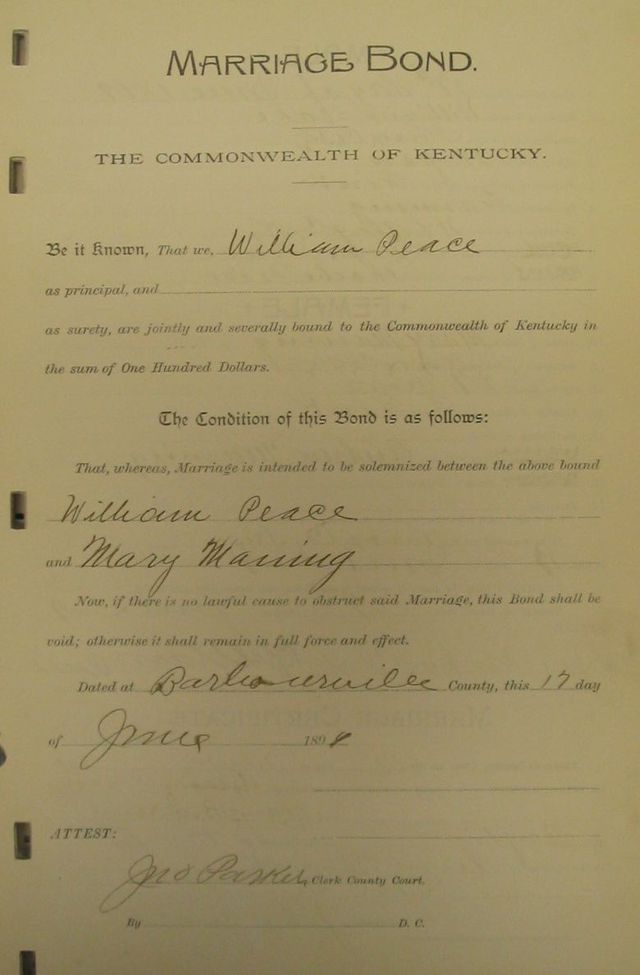 MARRIAGE BOND.
THE COMMONWEALTH OF KENTUCKY.
Be it Known, That we, William Peace
as principal, and
as surety, are jointly and severally bound to the Commonwealth of Kentucky in
the sum of One Hundred Dollars.
The Condition of this Bond is as follows:
That, whereas, Marriage is intended to be solemnized between the above bound
William Peace
and Mary Maning
Now, if there is no lawful cause to obstruct said Marriage, this Bond shall be
void; otherwise it shall remain in full force and effect.
Dated at Barbourville County, this 17 day
of June 1898
ATTEST:
Jno Parker, Clerk County Court.
By D. C.